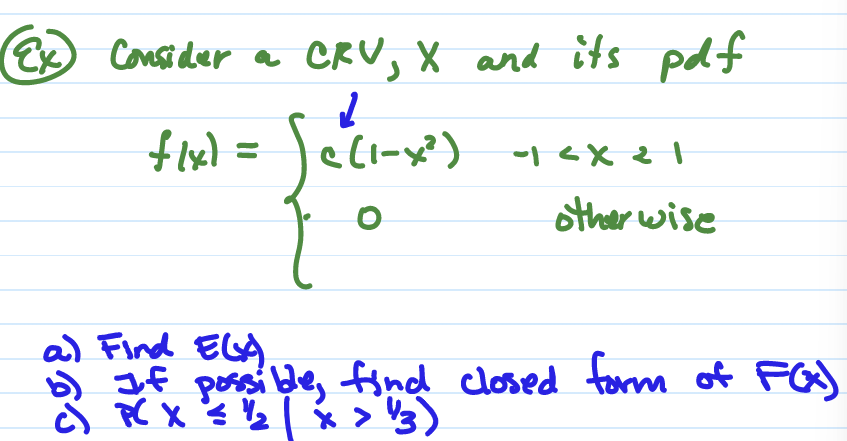 Ex) Consider a CRV, X and its pdf
f(x) = { c(1-x²) -1 < x < 1
0 otherwise
a) Find E(x)
b) If possible, find closed form of F(x)
c) P( X ≤ 1/2 | x > 1/3)